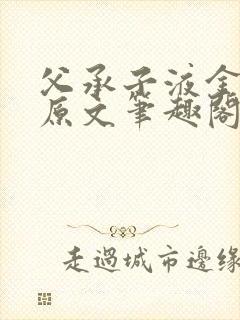 父承子液全
原文笔趣阁
走過城市邊緣